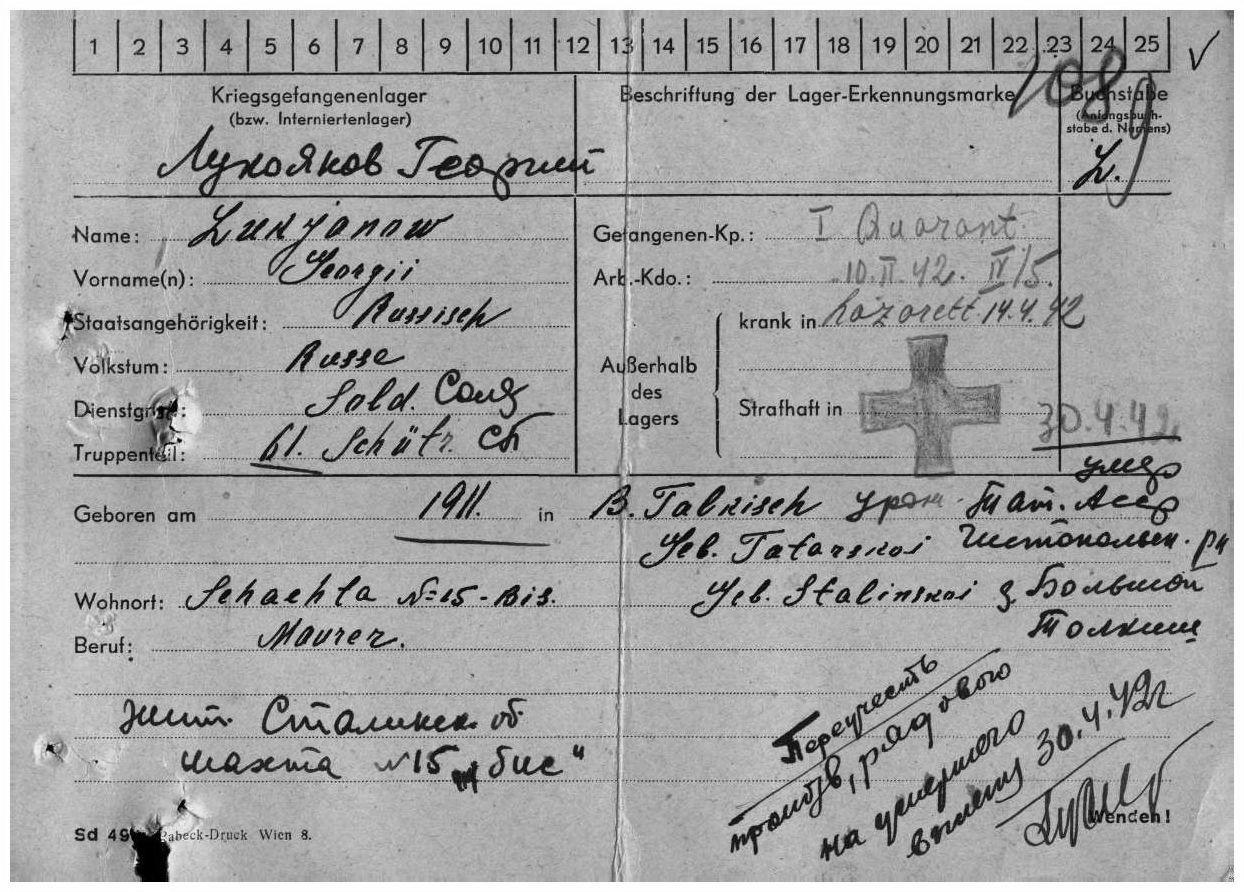 1 2 3 4 5 6 7 8 9 10 11 12 13 14 15 16 17 18 19 20 21 22 23 24 25
Kriegsgefangenenlager
(bzw. Interniertenlager)
Beschriftung der Lager-Erkennungsmarke
Buchstabe
(Anfangsbuch-
stabe d. Namens)
Лукояков Георгий
L.
Name: Lukjanow
Vorname(n): Georgii
Staatsangehörigkeit: Russisch
Volkstum: Russe
Dienstgrad: Sold. Солд
Truppenteil: 61. Schütz. СП
Gefangenen-Kp.: I Quarant.
Arb.-Kdo.: 10.II.42. IV/5.
Außerhalb
des
Lagers
krank in Lazarett 14.4.42
Strafhaft in
30.4.42.
умер
Geboren am 1911. in B. Talkisch урож. Тат. Асср
Geb. Tatarskoi Чистопольск. рн
Wohnort: Schachta №15-Bis. Geb. Stalinskoi д. Большой
Толкиш
Beruf: Maurer.
жит. Сталинск. об
шахта №15 "бис"
Переучесть
произв, рядового
на умершего
в плену 30.4.42г
Sd 49 Rabeck-Druck Wien 8.
Wenden!